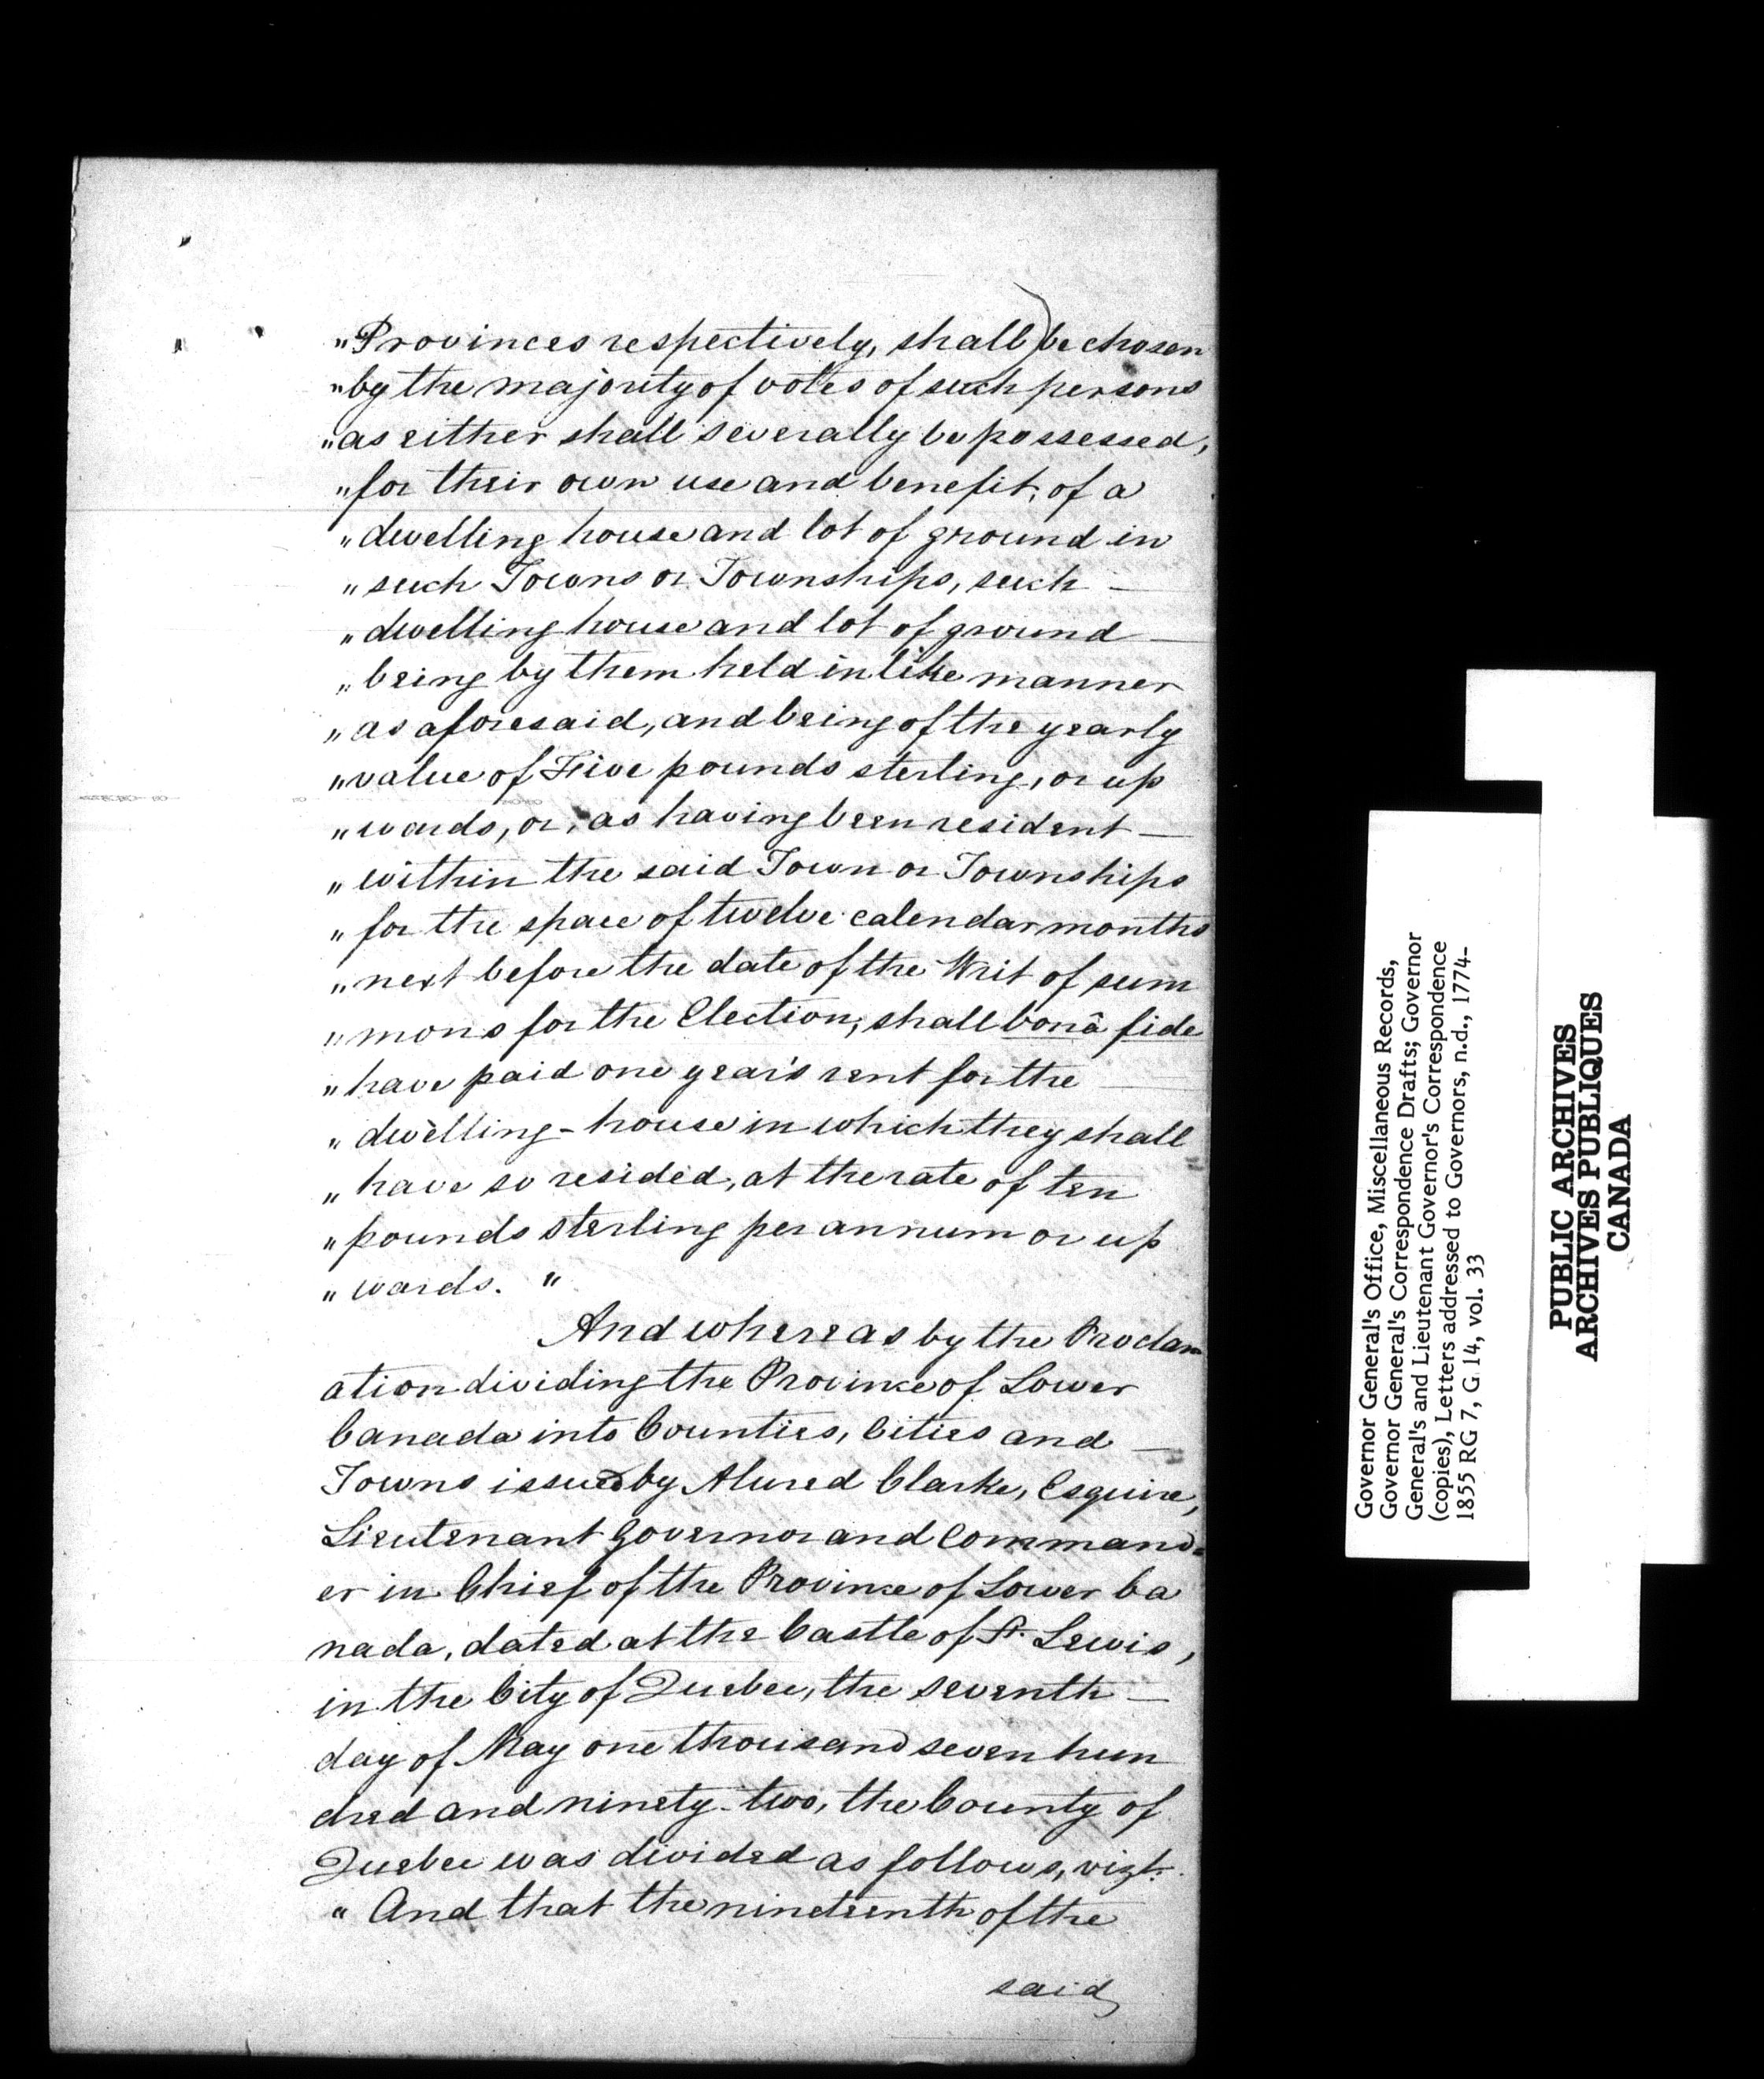 "Provinces respectively, shall) be chosen
"by the majority of votes of such persons
"as either shall severally be possessed,
"for their own use and benefit, of a
"dwelling house and lot of ground in
"such Towns or Townships, such —
"dwelling house and lot of ground —
"being by them held in like manner
"as aforesaid, and being of the yearly
"value of Five pounds sterling, or up
"wards, or, as having been resident —
"within the said Town or Townships
"for the space of twelve calendar months
"next before the date of the Writ of sum
"mons for the Election, shall bonâ fide
"have paid one year's rent for the
"dwelling-house in which they shall
"have so resided, at the rate of ten
"pounds sterling per annum or up
"wards. "
And whereas by the Proclam
ation dividing the Province of Lower
Canada into Counties, Cities and —
Towns issued by Alured Clarke, Esquire,
Lieutenant Governor and Command=
er in Chief of the Province of Lower Ca
nada, dated at the Castle of St. Lewis,
in the City of Quebec, the seventh —
day of May one thousand seven hun
dred and ninety-two, the County of
Quebec was divided as follows, vizt.
" And that the nineteenth of the
said
Governor General's Office, Miscellaneous Records,
Governor General's Correspondence Drafts; Governor
General's and Lieutenant Governor's Correspondence
(copies), Letters addressed to Governors, n.d., 1774-
1855 RG 7, G 14, vol. 33
PUBLIC ARCHIVES
ARCHIVES PUBLIQUES
CANADA